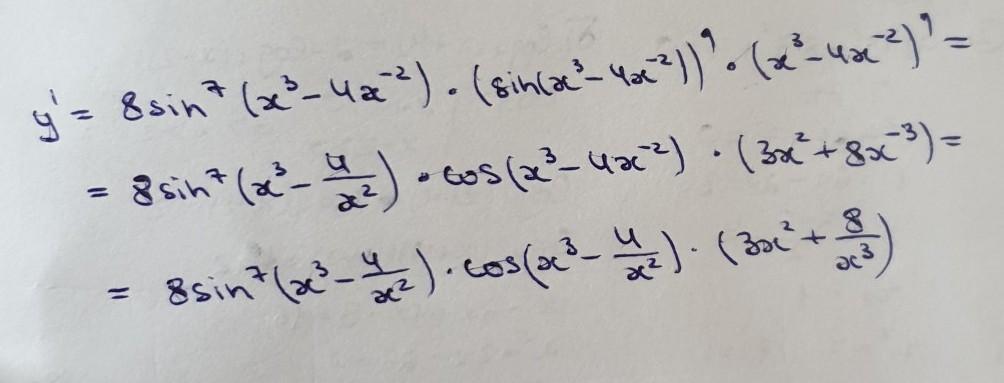 y' = 8sin⁷(x³ - 4x⁻²) · (sin(x³ - 4x⁻²))' · (x³ - 4x⁻²)' =
= 8sin⁷(x³ - 4/x²) · cos(x³ - 4x⁻²) · (3x² + 8x⁻³) =
= 8sin⁷(x³ - 4/x²) · cos(x³ - 4/x²) · (3x² + 8/x³)